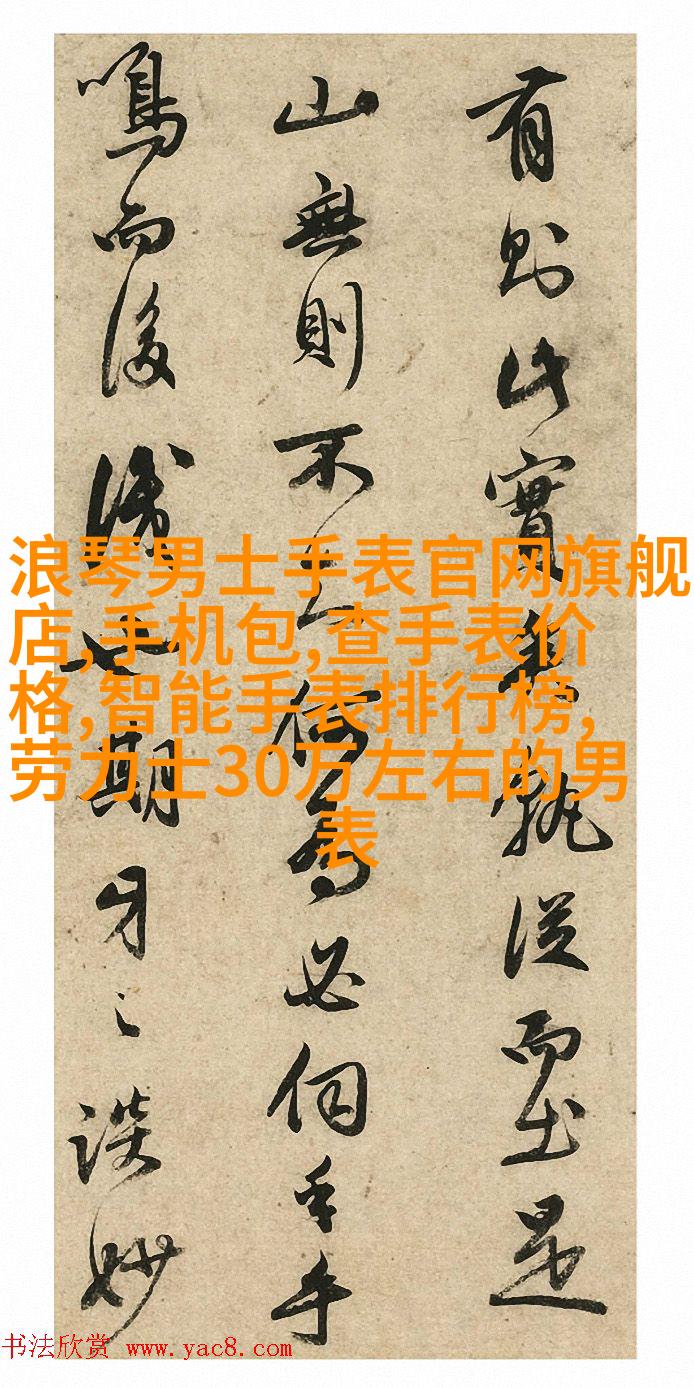 有則此實孰從而出是
山無則不何為必何手
鳴而後識也期牙之談妙
浪琴男士手表官网旗舰
店,手机包,查手表价
格,智能手表排行榜,
劳力士30万左右的男
表
书法欣赏 www.yac8.com